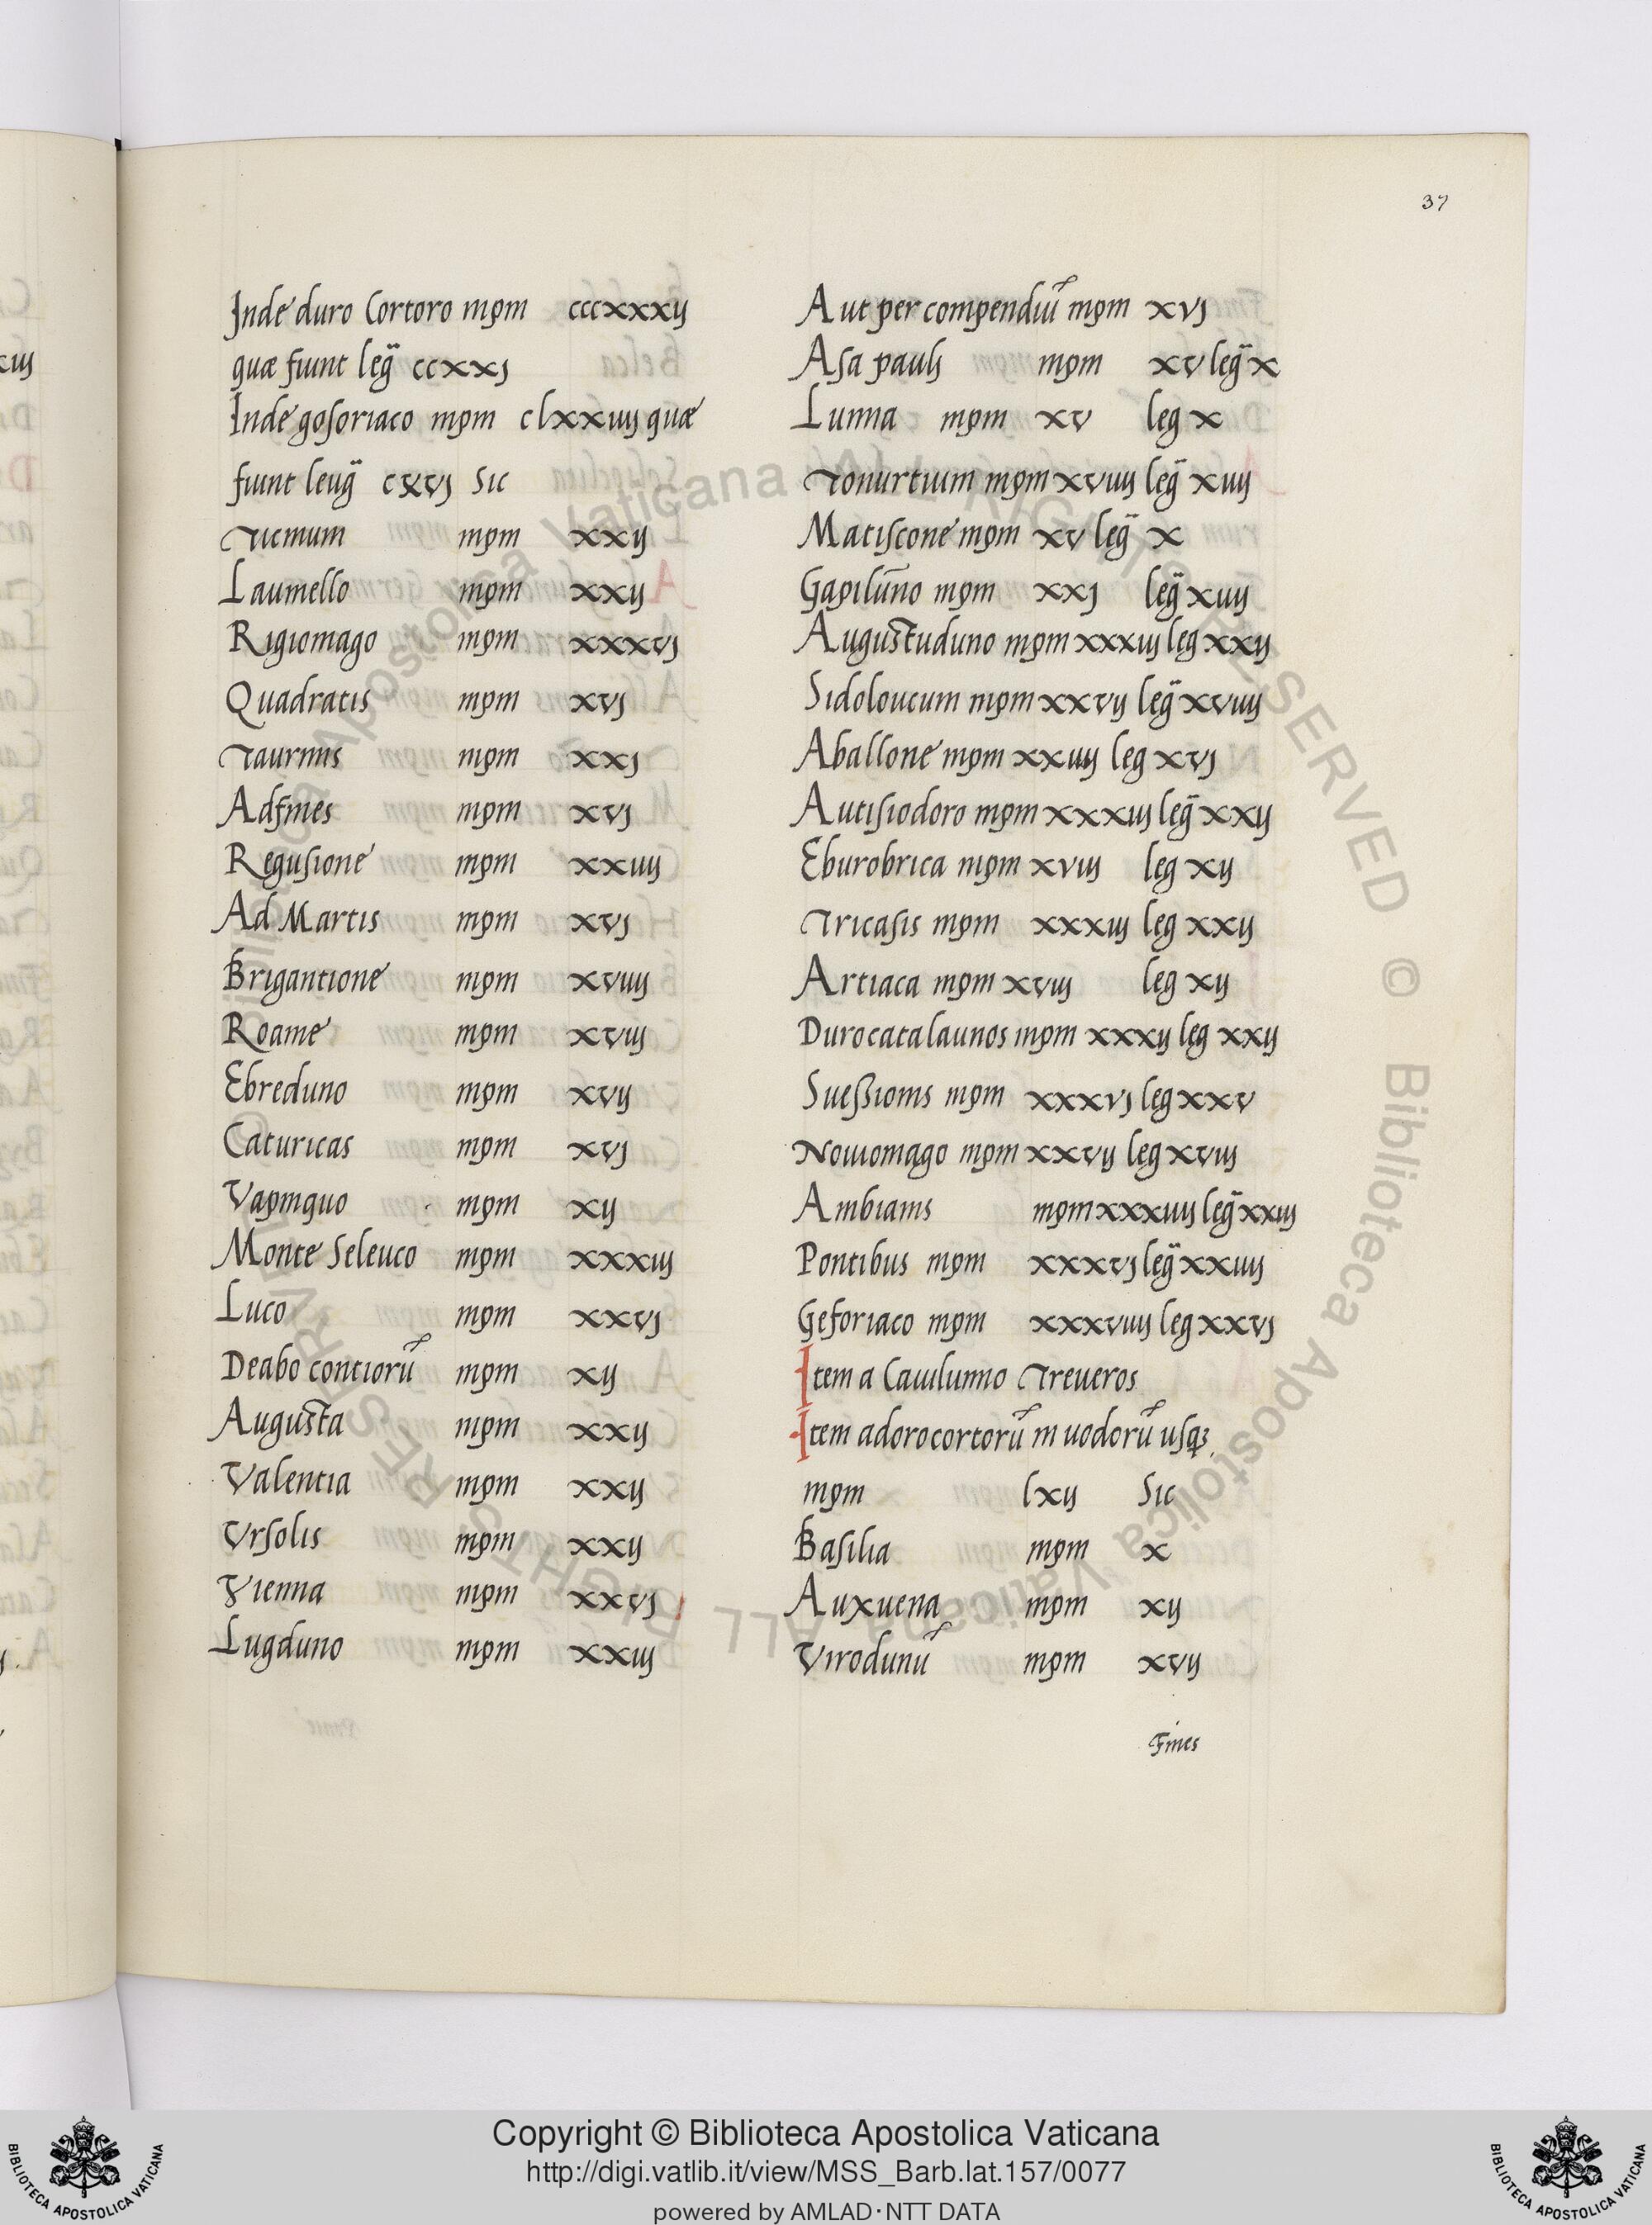 37
Inde duro Cortoro mpm cccxxxij
quæ fiunt leg̃ ccxxj
Inde gosoriaco mpm clxxiiij quæ
fiunt leug̃ cxvj sic
Ticinum mpm xxij
Laumello mpm xxij
Rigiomago mpm xxxvj
Quadratis mpm xvj
Taurinis mpm xxj
Adfines mpm xvj
Regusione mpm xxiiij
Ad Martis mpm xvj
Brigantione mpm xviiij
Roame mpm xviij
Ebreduno mpm xvij
Caturicas mpm xvj
Vapinquo mpm xij
Monte Seleuco mpm xxxiij
Luco mpm xxvj
Deabo contiorũ mpm xij
Augusta mpm xxij
Valentia mpm xxij
Vrsolis mpm xxij
Vienna mpm xxvj
Lugduno mpm xxiij
Aut per compendiũ mpm xvj
Asa paulj mpm xv leg̃ x
Lunna mpm xv leg x
Tonurtium mpm xviiij leg̃ xiiij
Matiscone mpm xv leg̃ x
Gapilũno mpm xxj leg̃ xiiij
Augustuduno mpm xxxiij leg xxij
Sidoloucum mpm xxvij leg̃ xviiij
Aballone mpm xxiiij leg xvj
Autisiodoro mpm xxxiij leg̃ xxij
Eburobrica mpm xviij leg xij
Tricasis mpm xxxiij leg xxij
Artiaca mpm xviij leg xij
Durocatalaunos mpm xxxij leg xxij
Sueßionis mpm xxxvj leg xxv
Nouiomago mpm xxvij leg xviij
Ambianis mpm xxxiiij leg̃ xxiij
Pontibus mpm xxxvj leg̃ xxiiij
Gesoriaco mpm xxxviiij leg xxvj
Item a Cauilunno Treueros
Item adorocortorũ in uodorũ usq3
mpm lxij Sic
Basilia mpm x
Auxuena mpm xij
Virodunũ mpm xvij
Fines
Copyright © Biblioteca Apostolica Vaticana
http://digi.vatlib.it/view/MSS_Barb.lat.157/0077
powered by AMLAD·NTT DATA
BIBLIOTECA APOSTOLICA VATICANA
BIBLIOTECA APOSTOLICA VATICANA